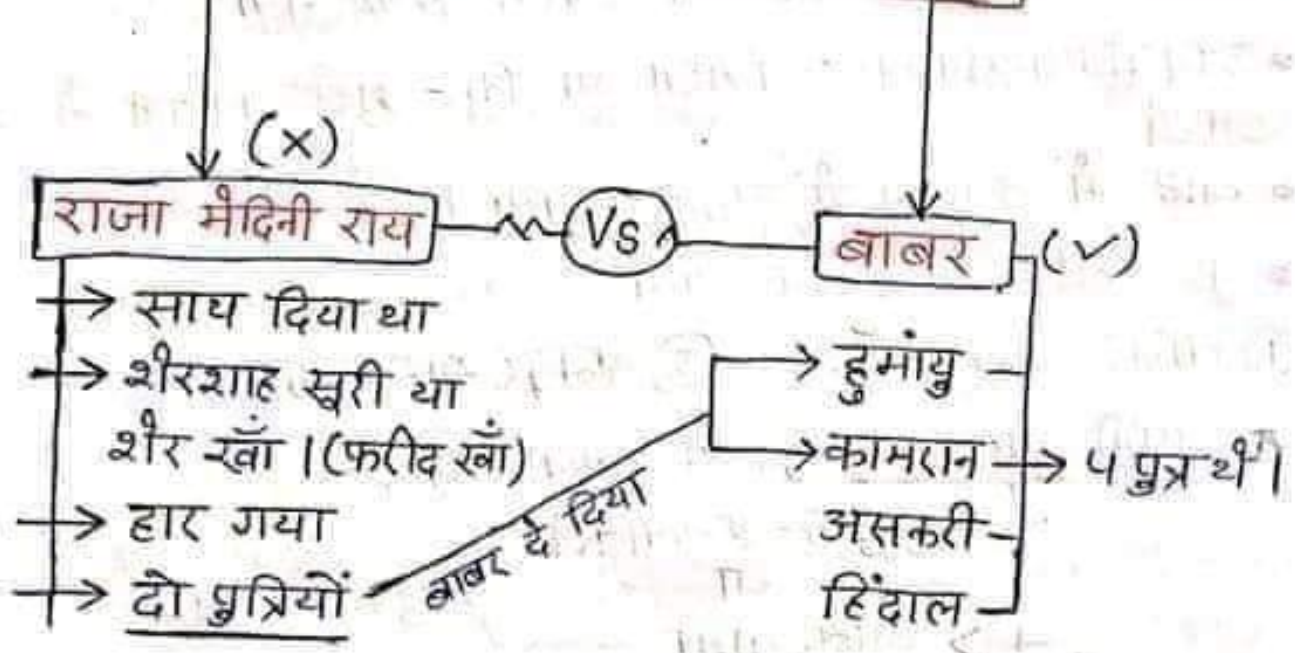 (x)
राजा मेदिनी राय Vs बाबर (✓)
→ साथ दिया था
→ शेरशाह सूरी था
शेर खाँ । (फरीद खाँ)
→ हार गया
→ दो पुत्रियों
बाबर दे दिया
→ हुमांयु
→ कामरान → ५ पुत्र थे ।
असकरी
हिंदाल